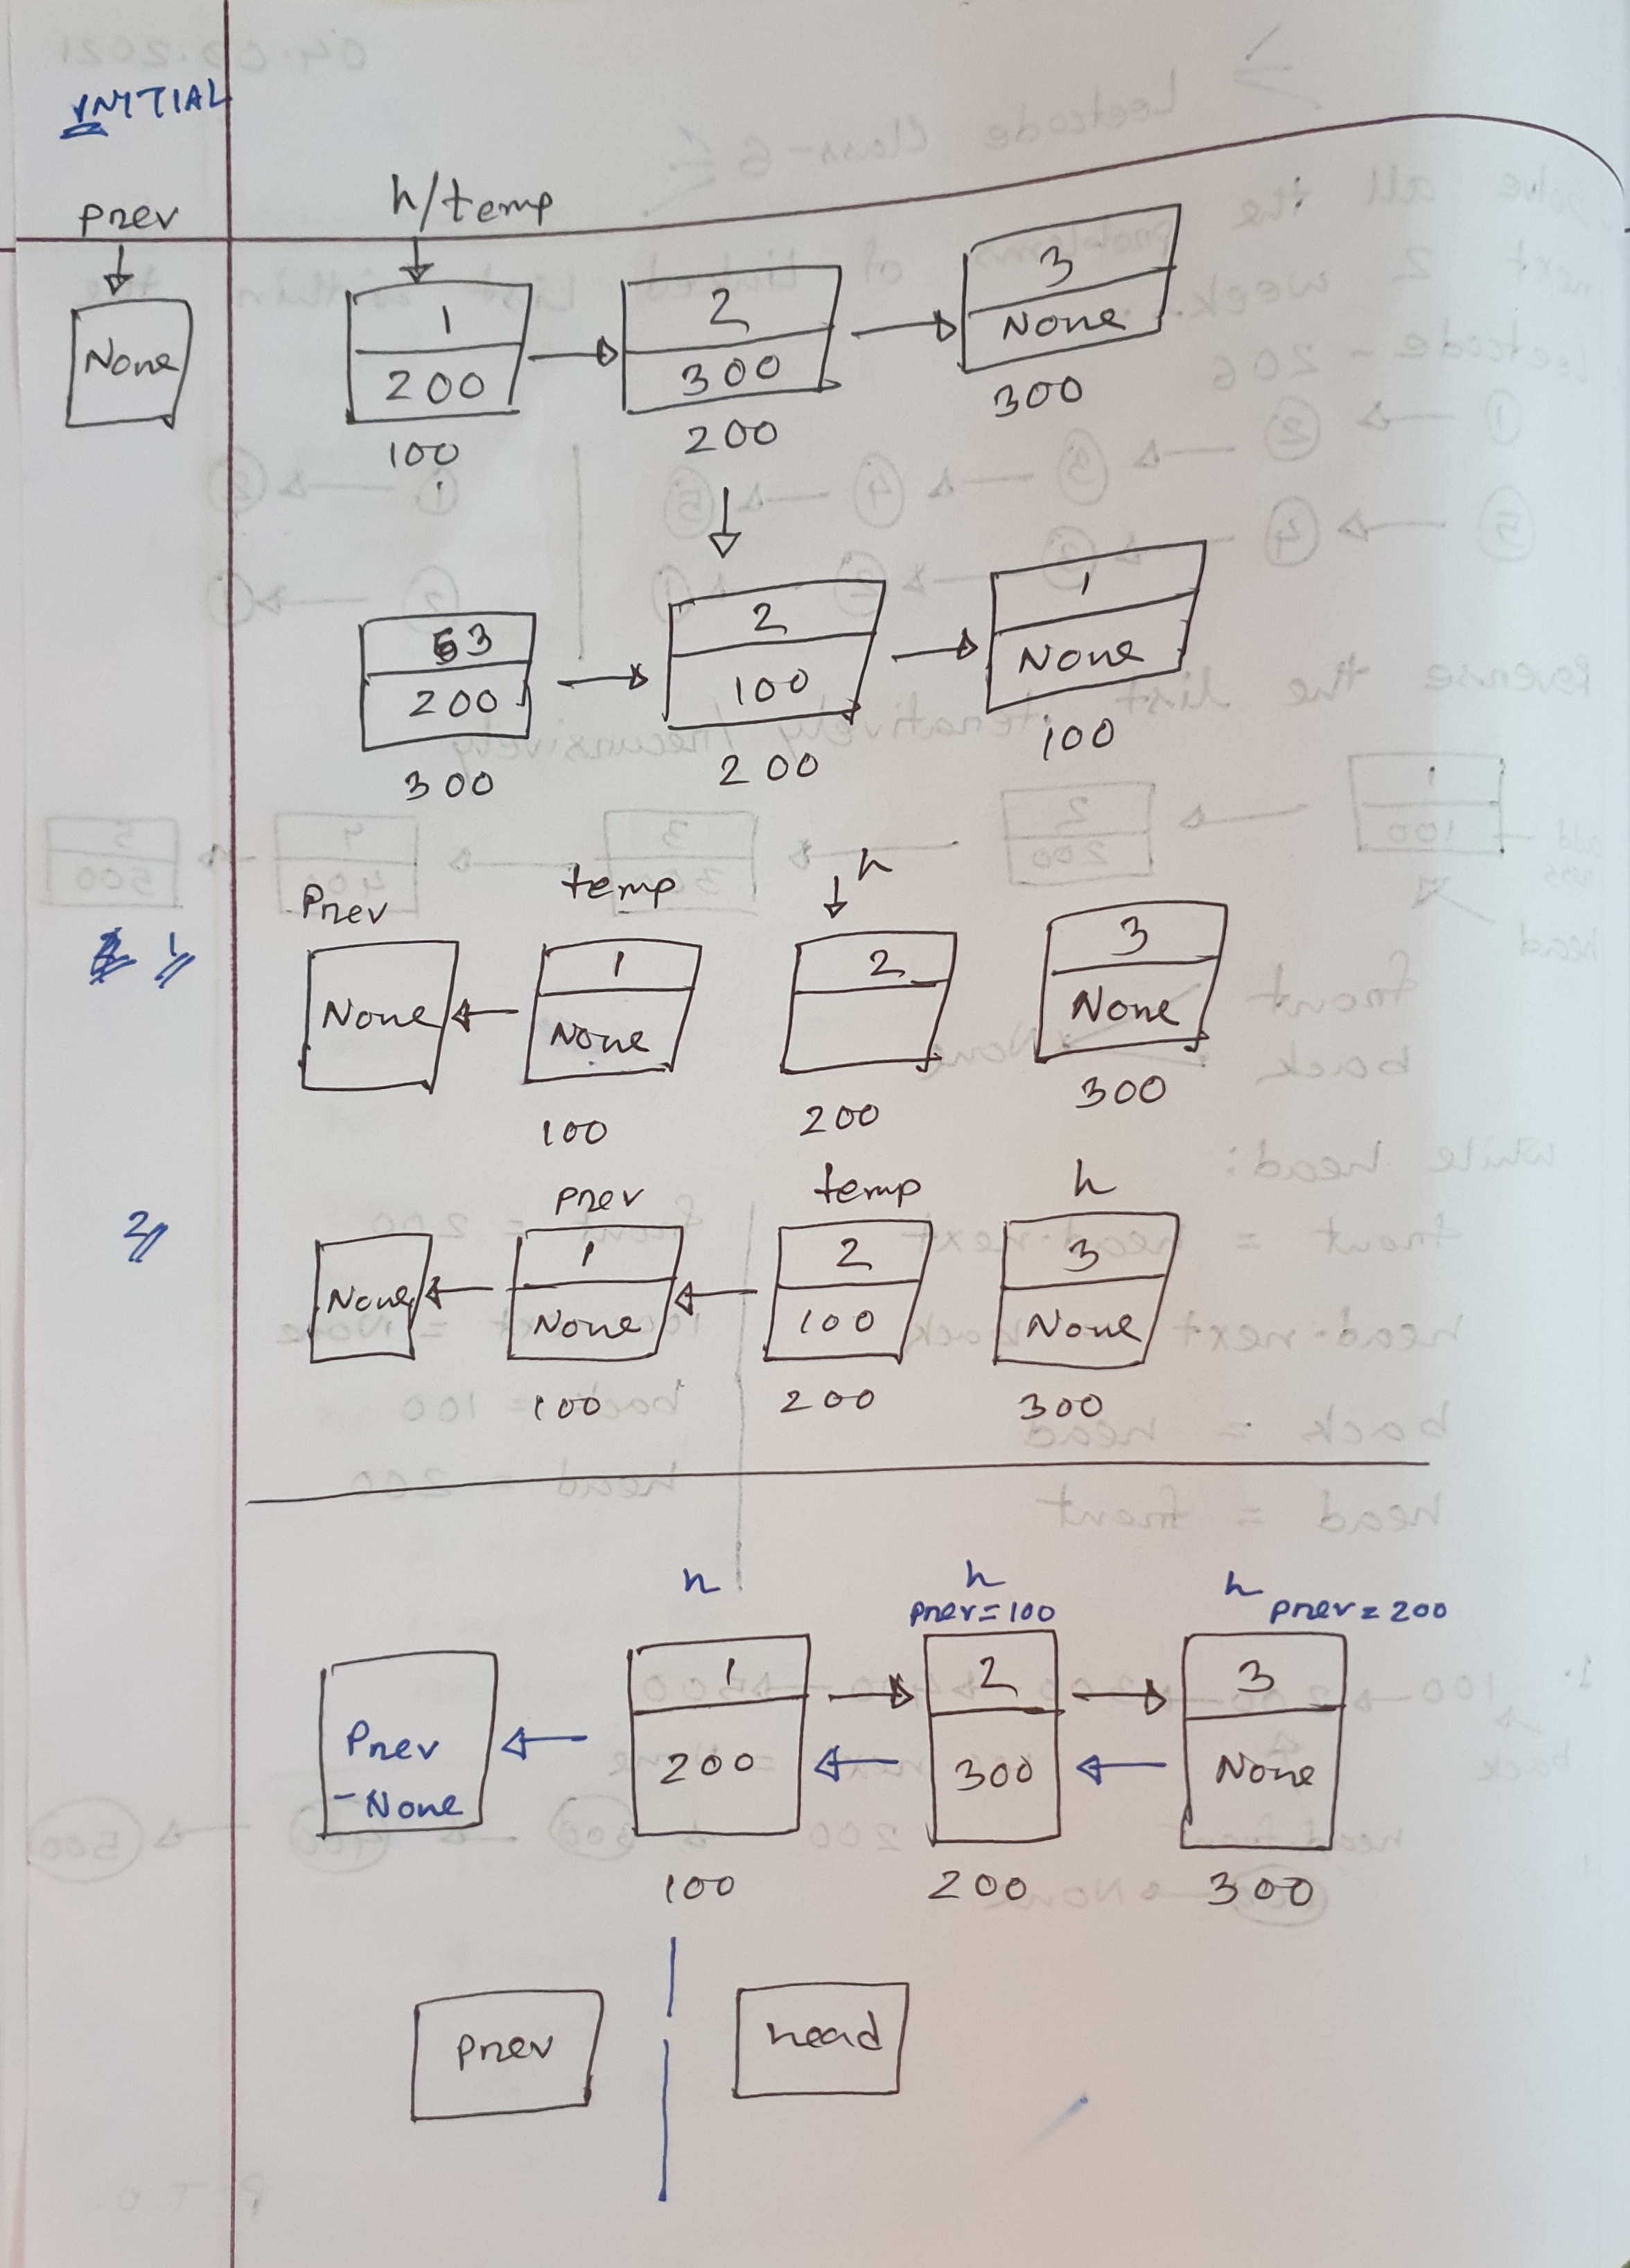 INITIAL
prev
h/temp
None
1
200
100
2
300
200
3
None
300
3
200
300
2
100
200
1
None
100
1
Prev
temp
h
None
1
None
100
2
200
3
None
300
2
prev
temp
h
None
1
None
100
2
100
200
3
None
300
h
h
prev=100
h
prev=200
Prev
-None
1
200
100
2
300
200
3
None
300
prev
head